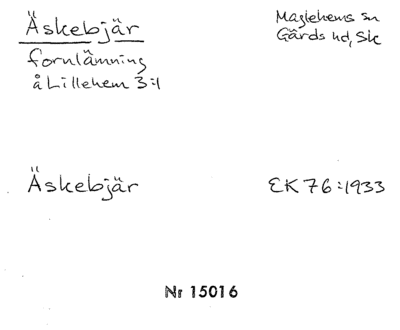 Äskebjär
Maglehems sn
Gärds hd, Sk
fornlämning
å Lillehem 3:1
Äskebjär
EK 76:1933
Nr 15016